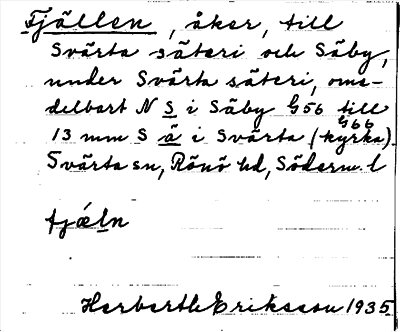 Fjällen, åker, till
Svärta säteri och Säby,
under Svärta säteri, ome-
delbart N S i Säby G56 till
13 mm S ä i Svärta (kyrka) G66.
Svärta sn, Rönö hd, Söderm. l
fjæln
Herberth Eriksson 1935